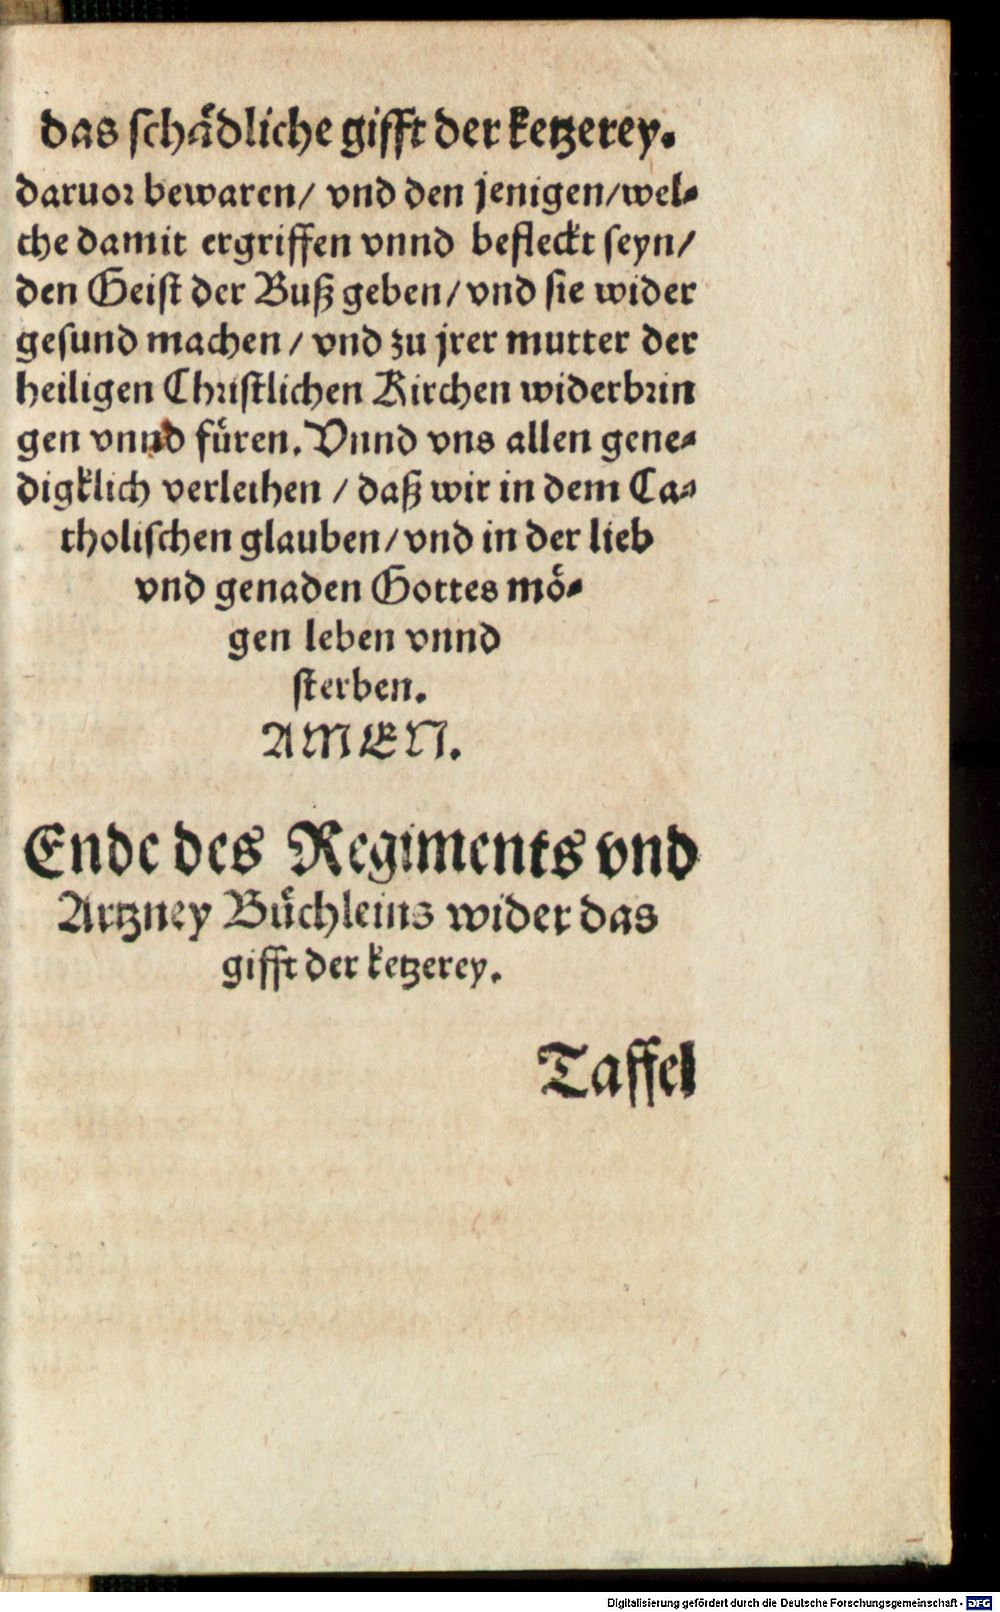 das schaͤdliche gifft der ketzerey.
daruor bewaren/ vnd den jenigen/wel⸗
che damit ergriffen vnnd befleckt seyn/
den Geist der Buß geben/vnd sie wider
gesund machen/ vnd zu jrer mutter der
heiligen Christlichen Kirchen widerbrin
gen vnnd fuͤren. Vnnd vns allen gene⸗
digklich verleihen / daß wir in dem Ca⸗
tholischen glauben/vnd in der lieb
vnd genaden Gottes moͤ⸗
gen leben vnnd
sterben.
AMEN.
Ende des Regiments vnd
Artzney Buͤchleins wider das
gifft der ketzerey.
Taffel
Digitalisierung gefördert durch die Deutsche Forschungsgemeinschaft - DFG